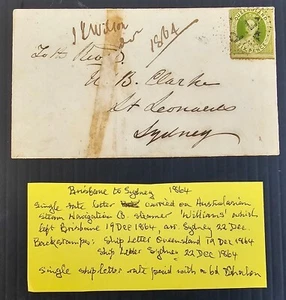 J V Wilson
1864
To the Revd
W. B. Clarke
St Leonards
Sydney
Brisbane to Sydney 1864
Single rate letter carried on Australasian
Steam Navigation Co. steamer 'Williams' which
left Brisbane 17 Dec 1864, arr. Sydney 22 Dec.
Backstamps: Ship Letter Queensland 17 Dec 1864
Ship Letter Sydney 22 Dec 1864
Single ship letter rate paid with m 6d Chalon